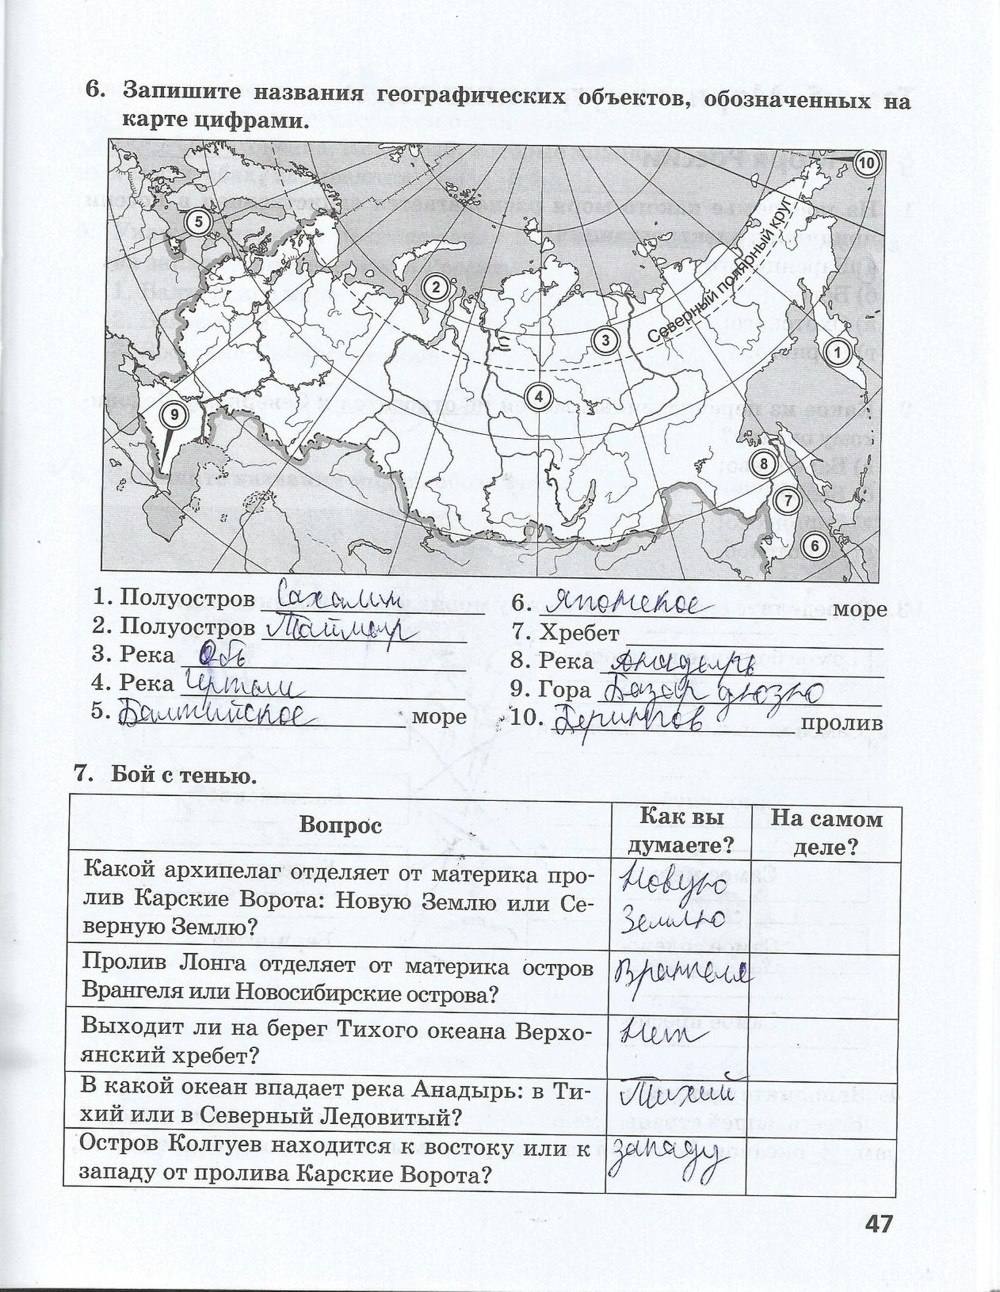 6. Запишите названия географических объектов, обозначенных на
карте цифрами.
10
5
2
Северный полярный круг
3
1
4
9
8
7
6
1. Полуостров Сахалин
2. Полуостров Таймыр
3. Река Обь
4. Река Чертали
5. Балтийское море
6. Японское море
7. Хребет
8. Река Анадырь
9. Гора Базар дюзю
10. Берингов пролив
7. Бой с тенью.
Вопрос
Как вы
думаете?
На самом
деле?
Какой архипелаг отделяет от материка про-
лив Карские Ворота: Новую Землю или Се-
верную Землю?
Новую
Землю
Пролив Лонга отделяет от материка остров
Врангеля или Новосибирские острова?
Врангеля
Выходит ли на берег Тихого океана Верхо-
янский хребет?
Нет
В какой океан впадает река Анадырь: в Ти-
хий или в Северный Ледовитый?
Тихий
Остров Колгуев находится к востоку или к
западу от пролива Карские Ворота?
западу
47